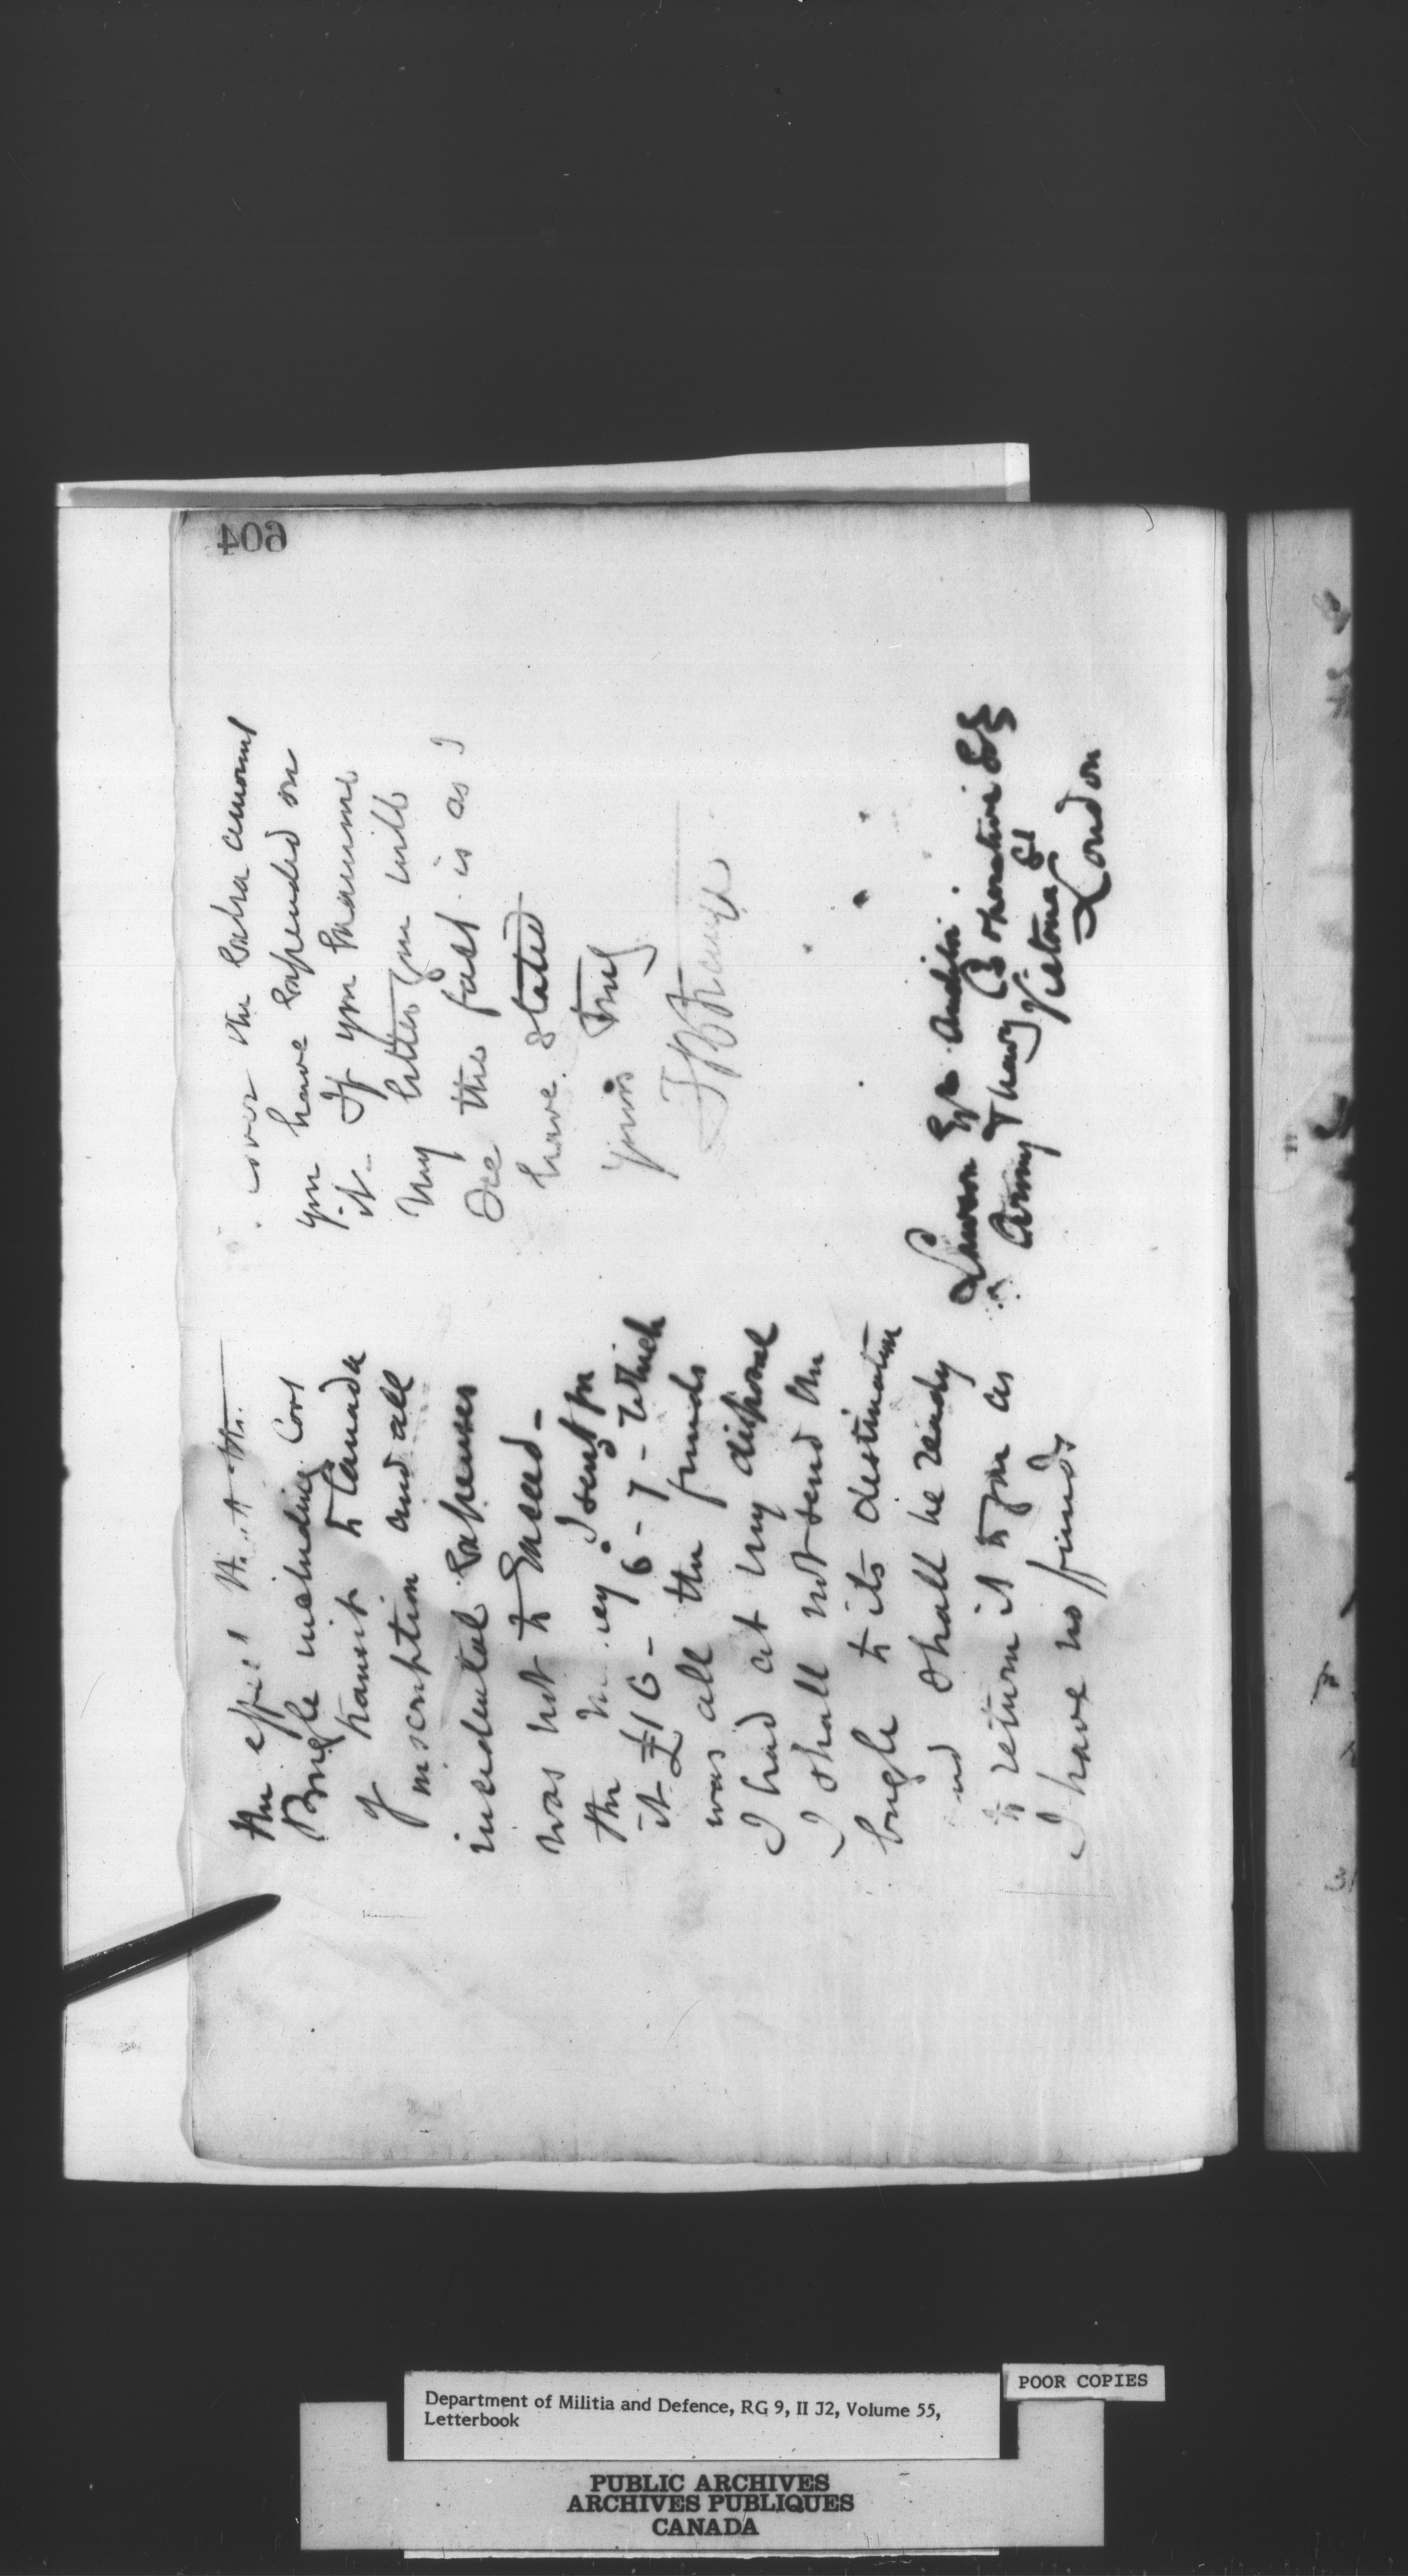 604
the effect that the
Bugle including Cost
of transit to Canada
inscription and all
incidental Expenses
was not to Exceed -
the money I sent for
it £16 - 6 - 7 - which
was all the funds
I had at my disposal
I shall not send the
bugle to its destination
and shall be ready
to return it to you as
I have no funds
over the Extra amount
you have Expended on
it - If you Examine
my letter you will
see the fact is as I
have stated
Yours truly
Lawson Esqr Auditor
Army & Navy Coöperative Socy
Victoria St
London
POOR COPIES
Department of Militia and Defence, RG 9, II J2, Volume 55,
Letterbook
PUBLIC ARCHIVES
ARCHIVES PUBLIQUES
CANADA